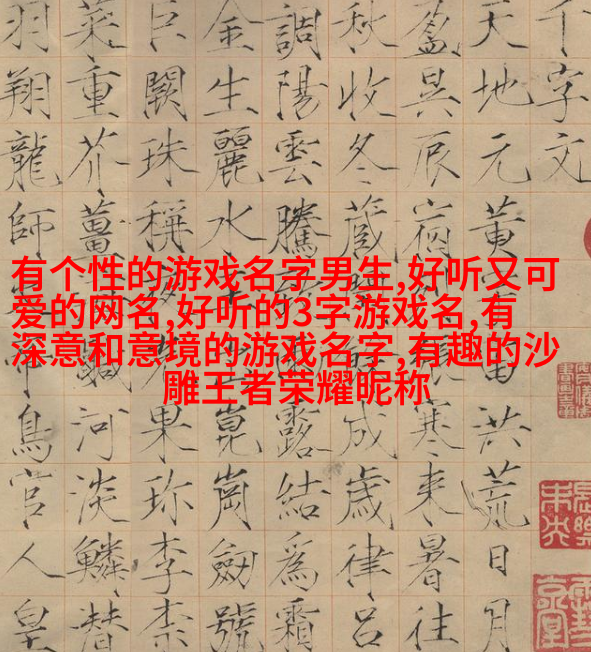 有个性的游戏名字男生,好听又可
爱的网名,好听的3字游戏名,有
深意和意境的游戏名字,有趣的沙
雕王者荣耀昵称
千字文
天地元黄宇宙洪荒日月
盈昃辰宿列張寒来暑往
秋收冬蔵閏餘成歳律呂
調陽雲騰致雨露結為霜
金生麗水玉出崑崗劒號
巨闕珠稱夜光果珍李柰
菜重芥薑海鹹河淡鱗潜
羽翔龍師火帝鳥官人皇